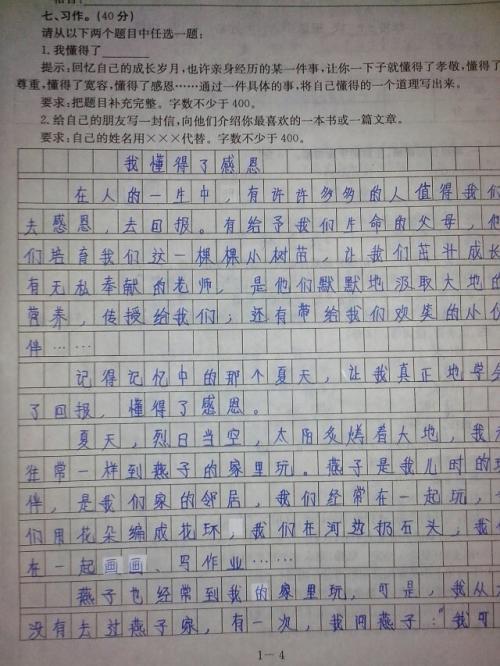 七、习作。(40分)
请从以下两个题目中任选一题:
1.我懂得了
提示:回忆自己的成长岁月,也许亲身经历的某一件事,让你一下子就懂得了孝敬,懂得了
尊重,懂得了宽容,懂得了感恩……通过一件具体的事,将自己懂得的一个道理写出来。
要求:把题目补充完整。字数不少于400。
2.给自己的朋友写一封信,向他们介绍你最喜欢的一本书或一篇文章。
要求:自己的姓名用×××代替。字数不少于400。
我懂得了感恩
在人的一生中,有许许多多的人值得我们
去感恩,去回报。有给予我们生命的父母,他
们培育我们这一棵棵小树苗,让我们茁壮成长
有无私奉献的老师,是他们默默地汲取大地的
营养,传授给我们;还有带给我们欢笑的小伙
伴……
记得记忆中的那个夏天,让我真正地学会
了回报,懂得了感恩。
夏天,烈日当空,太阳炙烤着大地,我
往常一样到燕子的家里玩。燕子是我儿时的玩
伴,是我们家的邻居,我们经常在一起玩,
们用花朵编成花环,我们在河边扔石头,我
在一起画画、写作业……
燕子也经常到我的家里玩,可是,我从
没有去过燕子家,有一次,我问燕子:“我可
1—4